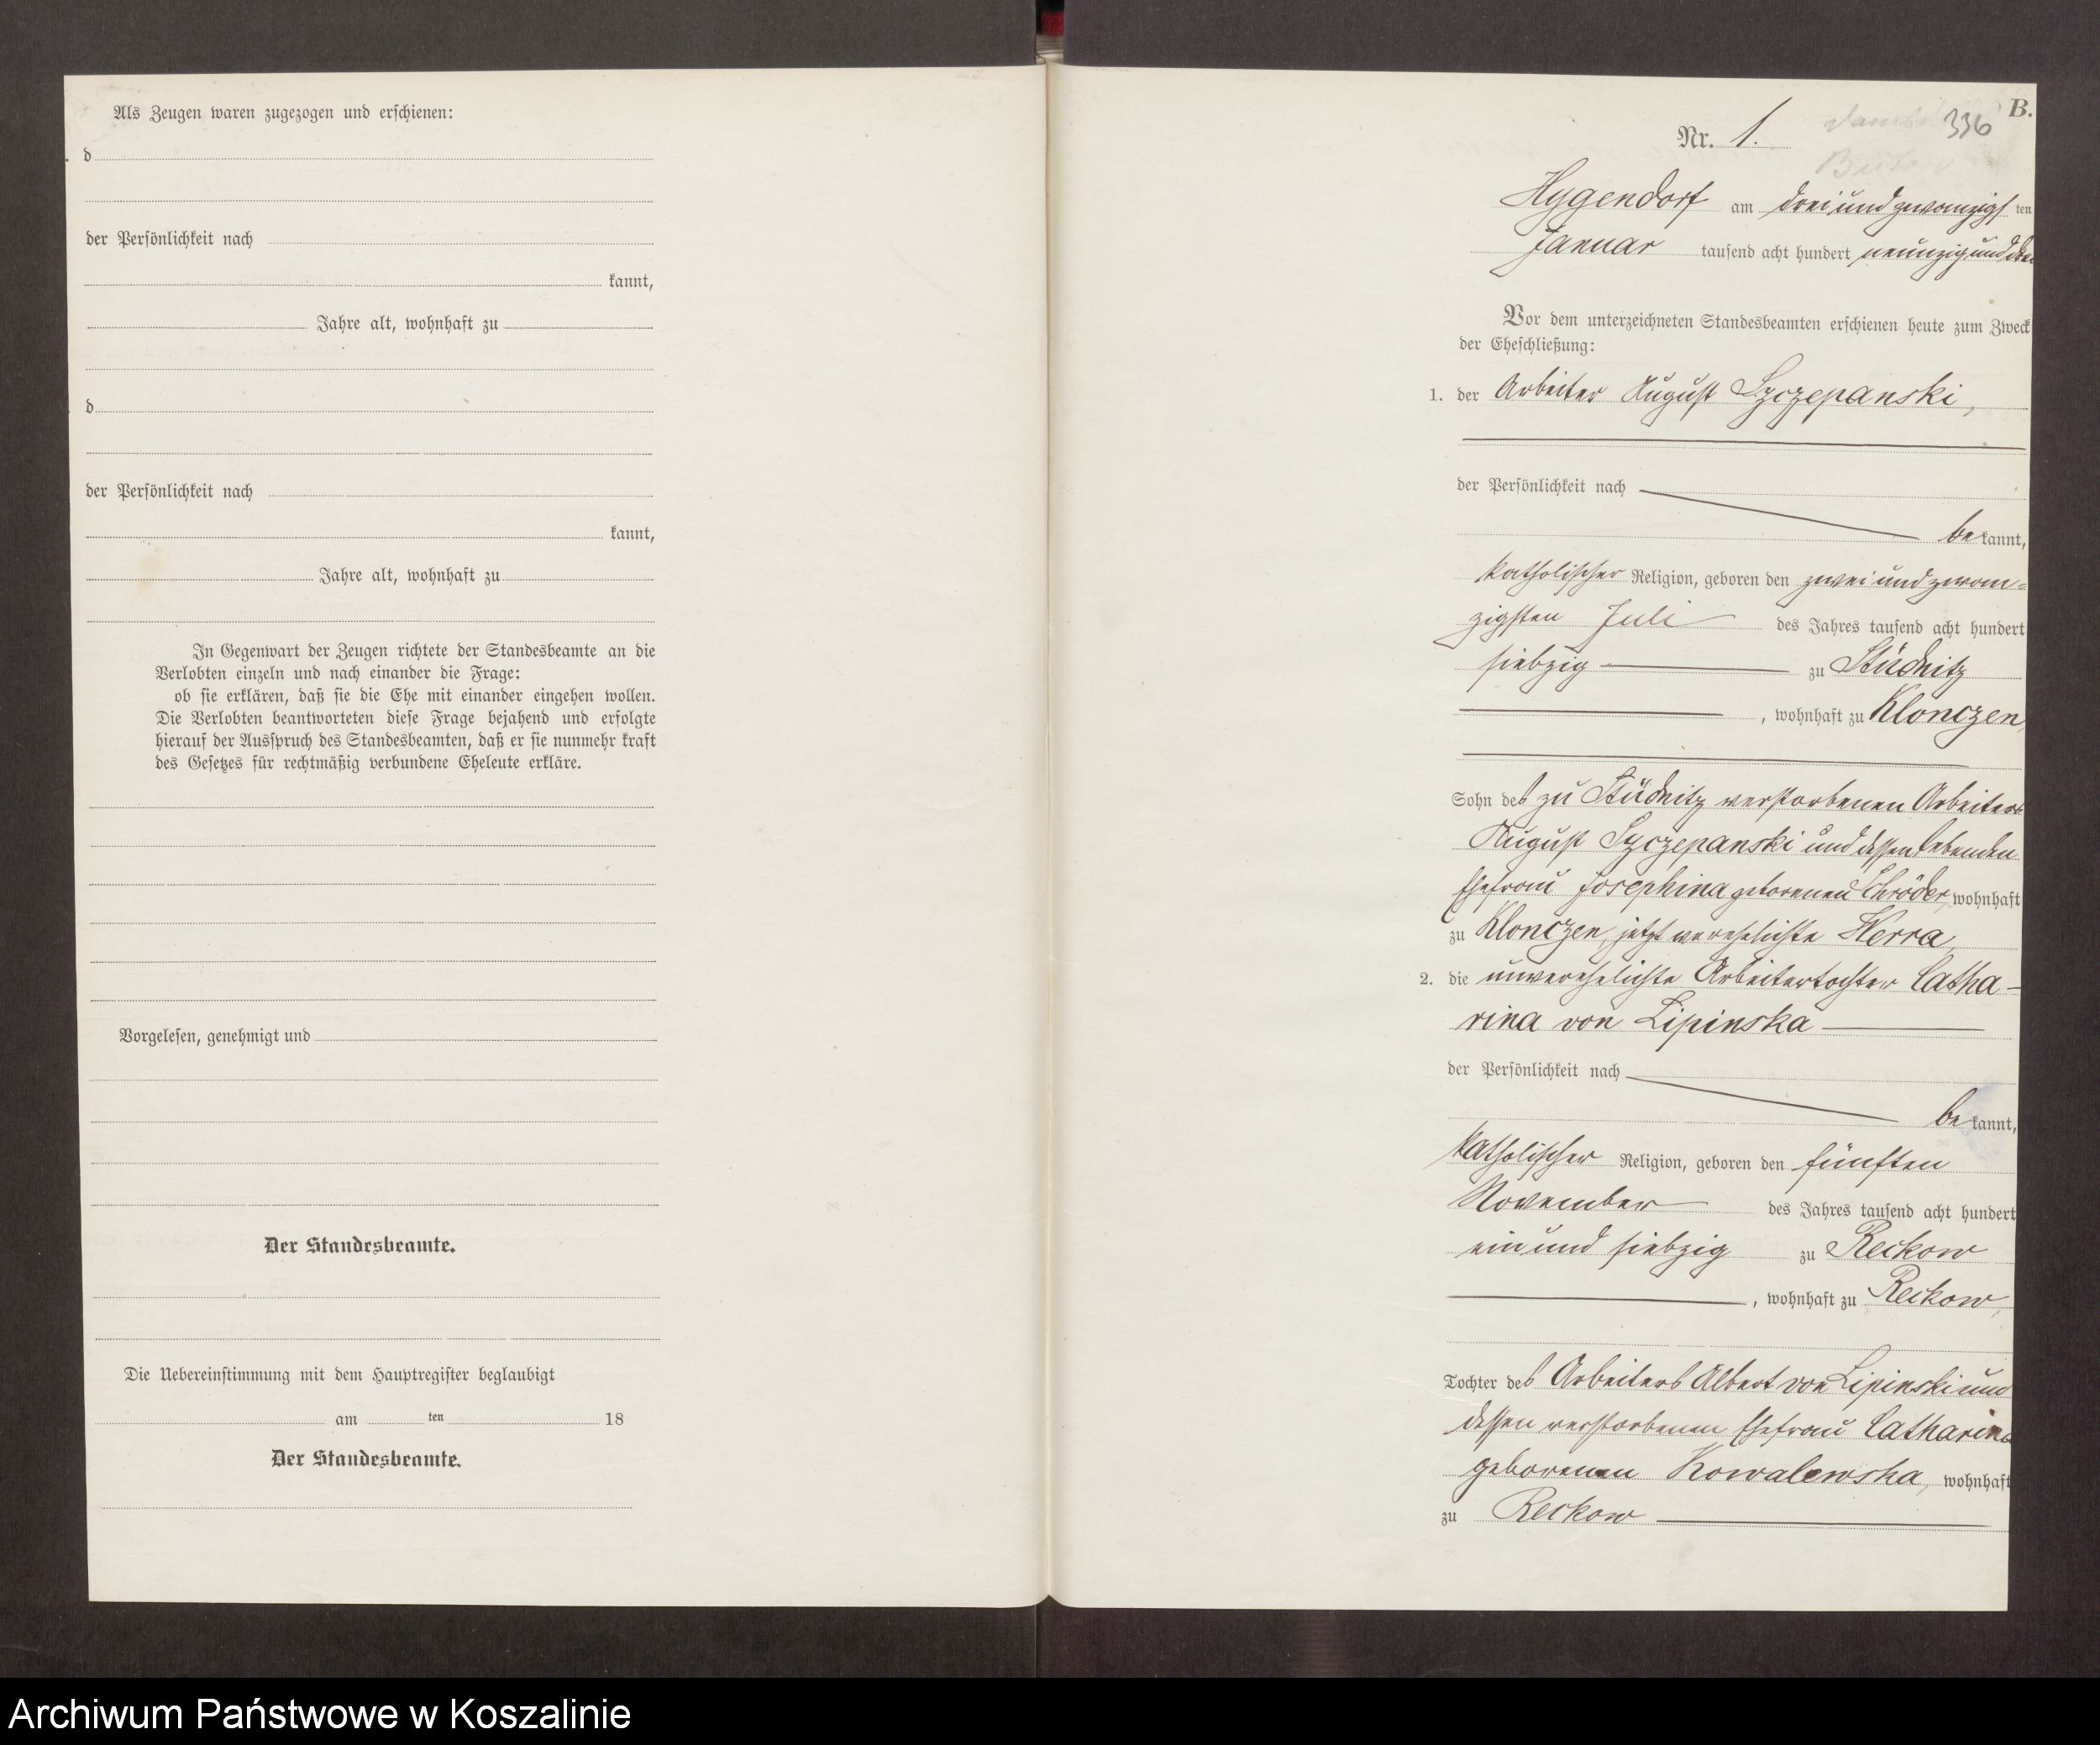 Als Zeugen waren zugezogen und erschienen:
d
der Persönlichkeit nach
kannt,
Jahre alt, wohnhaft zu
d
der Persönlichkeit nach
kannt,
Jahre alt, wohnhaft zu
In Gegenwart der Zeugen richtete der Standesbeamte an die
Verlobten einzeln und nach einander die Frage:
ob sie erklären, daß sie die Ehe mit einander eingehen wollen.
Die Verlobten beantworteten diese Frage bejahend und erfolgte
hierauf der Ausspruch des Standesbeamten, daß er sie nunmehr kraft
des Gesetzes für rechtmäßig verbundene Eheleute erkläre.
Vorgelesen, genehmigt und
Der Standesbeamte.
Die Uebereinstimmung mit dem Hauptregister beglaubigt
am ten 18
Der Standesbeamte.
B.
336
Nr. 1.
Hygendorf am drei und zwanzigsten
Januar tausend acht hundert neunzig und drei
Vor dem unterzeichneten Standesbeamten erschienen heute zum Zweck
der Eheschließung:
1. der Arbeiter August Szczepanski,
der Persönlichkeit nach
bekannt,
katholischer Religion, geboren den zwei und zwan=
zigsten Juli des Jahres tausend acht hundert
siebzig zu Stüdnitz
, wohnhaft zu Klonczen,
Sohn des zu Stüdnitz verstorbenen Arbeiters
August Szczepanski und dessen lebenden
Ehefrau Josephina geborenen Schröder, wohnhaft
zu Klonczen, jetzt verehelichte Herra,
2. die unverehelichte Arbeitertochter Catha-
rina von Lipinska
der Persönlichkeit nach
bekannt,
katholischer Religion, geboren den fünften
November des Jahres tausend acht hundert
ein und siebzig zu Reckow
, wohnhaft zu Reckow,
Tochter des Arbeiters Albert von Lipinski und
dessen verstorbenen Ehefrau Catharina
geborenen Kowalewska, wohnhaft
zu Reckow
Archiwum Państwowe w Koszalinie